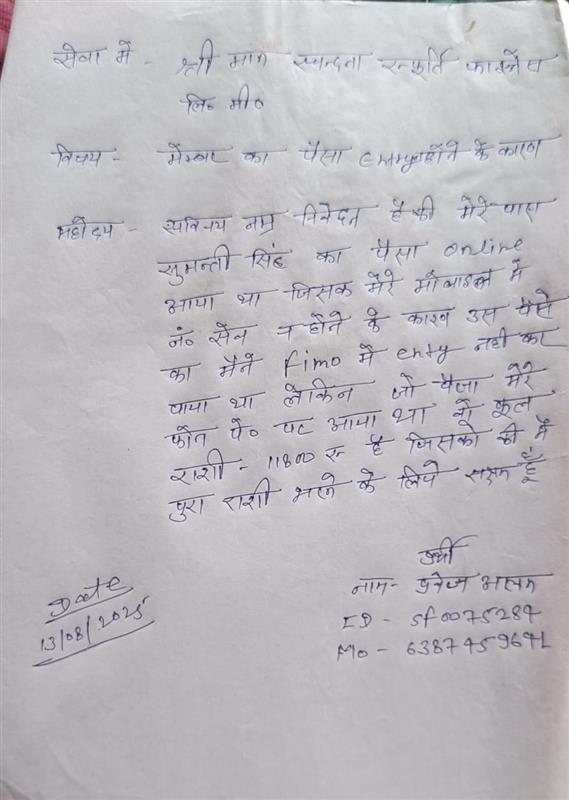 सेवा में - श्री मान स्पन्दना स्फूर्ति फाइनेंस
लि० मी०
विषय - मेम्बर का पैसा entry न होने के कारण
महोदय - सविनय नम्र निवेदन है की मेरे पास
सुमन्ती सिंह का पैसा online
आया था जिसक मेरे मोबाइल में
नं० सेव न होने के कारण उस पैसे
का मैने fimo में enty नही कर
पाया था लेकिन जो पैसा मेरे
फोन पे० पर आया था वो कूल
राशी - 11800 रू है जिसको की मैं
पुरा राशी भरने के लिये सक्षम हूँ
प्रार्थी
नाम - प्रवेज आलम
ID - Sf0075284
Mo - 6387459641
Date
13/08/2025